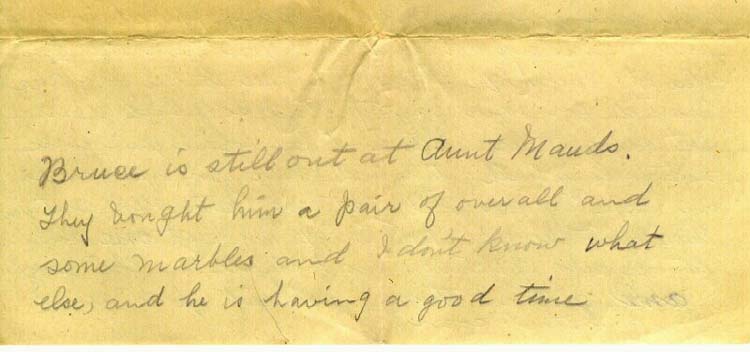 Bruce is still out at Aunt Mauds.
They bought him a pair of overall and
some marbles and I don't know what
else, and he is having a good time